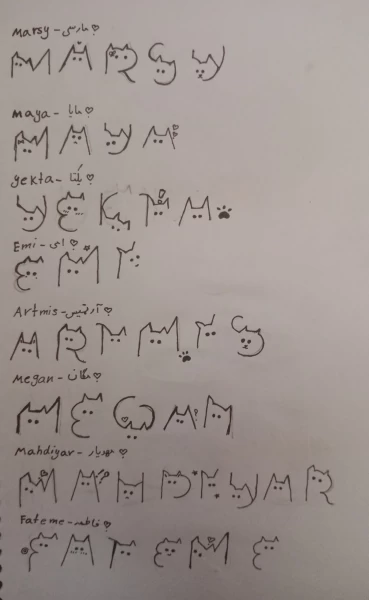 Marsy - مارسی ♡
MARSY
Maya - مایا ♡
MAYA
yekta - یکتا ♡
YEKTA
Emi - امی ♡
EMI
Artmis - آرتمیس ♡
ARTMIS
Megan - مگان ♡
MEGAN
Mahdiyar - مهدیار ♡
MAHDIYAR
Fateme - فاطمه ♡
FATEME